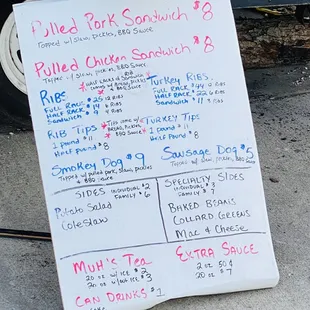 Pulled Pork Sandwich $8
Topped w/ slaw, pickles, BBQ Sauce
Pulled Chicken Sandwich $8
Topped w/ slaw, pickles, BBQ Sauce
Ribs
Full Rack $25 12 Ribs
Half Rack $14 6 Ribs
Sandwich $9 4 Ribs
Turkey Ribs
Full Rack $44
Half Rack $22 6 Ribs
Sandwich $11 4 Ribs
Rib Tips
1 Pound $11
Half Pound $8
Turkey Tips
1 Pound $11
Half Pound $8
Smokey Dog $9
Topped w/ pulled pork, slaw, pickles
& BBQ Sauce
Sausage Dog $5
Topped w/ slaw,
Sides Individual $2
Family $6
Potato Salad
Coleslaw
Specialty Sides
Individual $3
Family $7
Baked Beans
Collard Greens
Mac & Cheese
Muh's Tea
20 oz w/ ice $2
20 oz w/out ice $3
Can Drinks $1
Extra Sauce
2 oz 50¢
20 oz $7